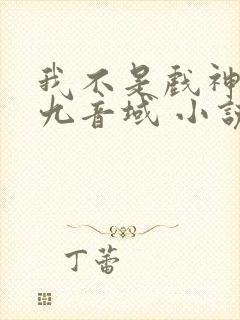 我不是戏神
九音域 小说
丁蕾